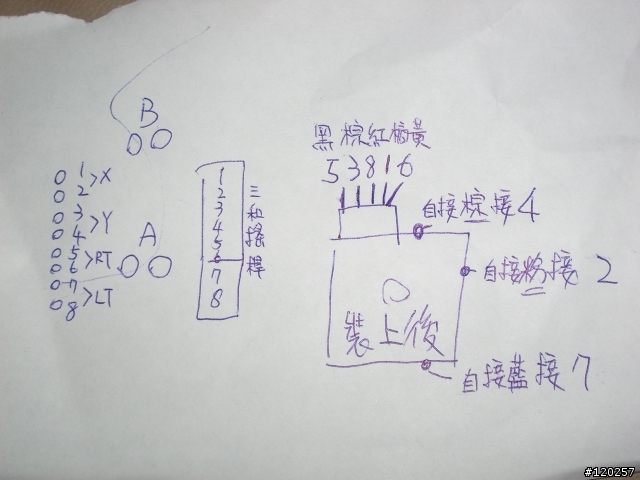 B
1
2 >X
3
4 >Y
5
6 >RT
7
8 >LT
A
1
2
3
4
5
6
7
8
三和搖桿
黑棕紅橘黃
5 3 8 1 6
自接棕接4
自接粉接 2
裝上後
自接藍接7
#120257